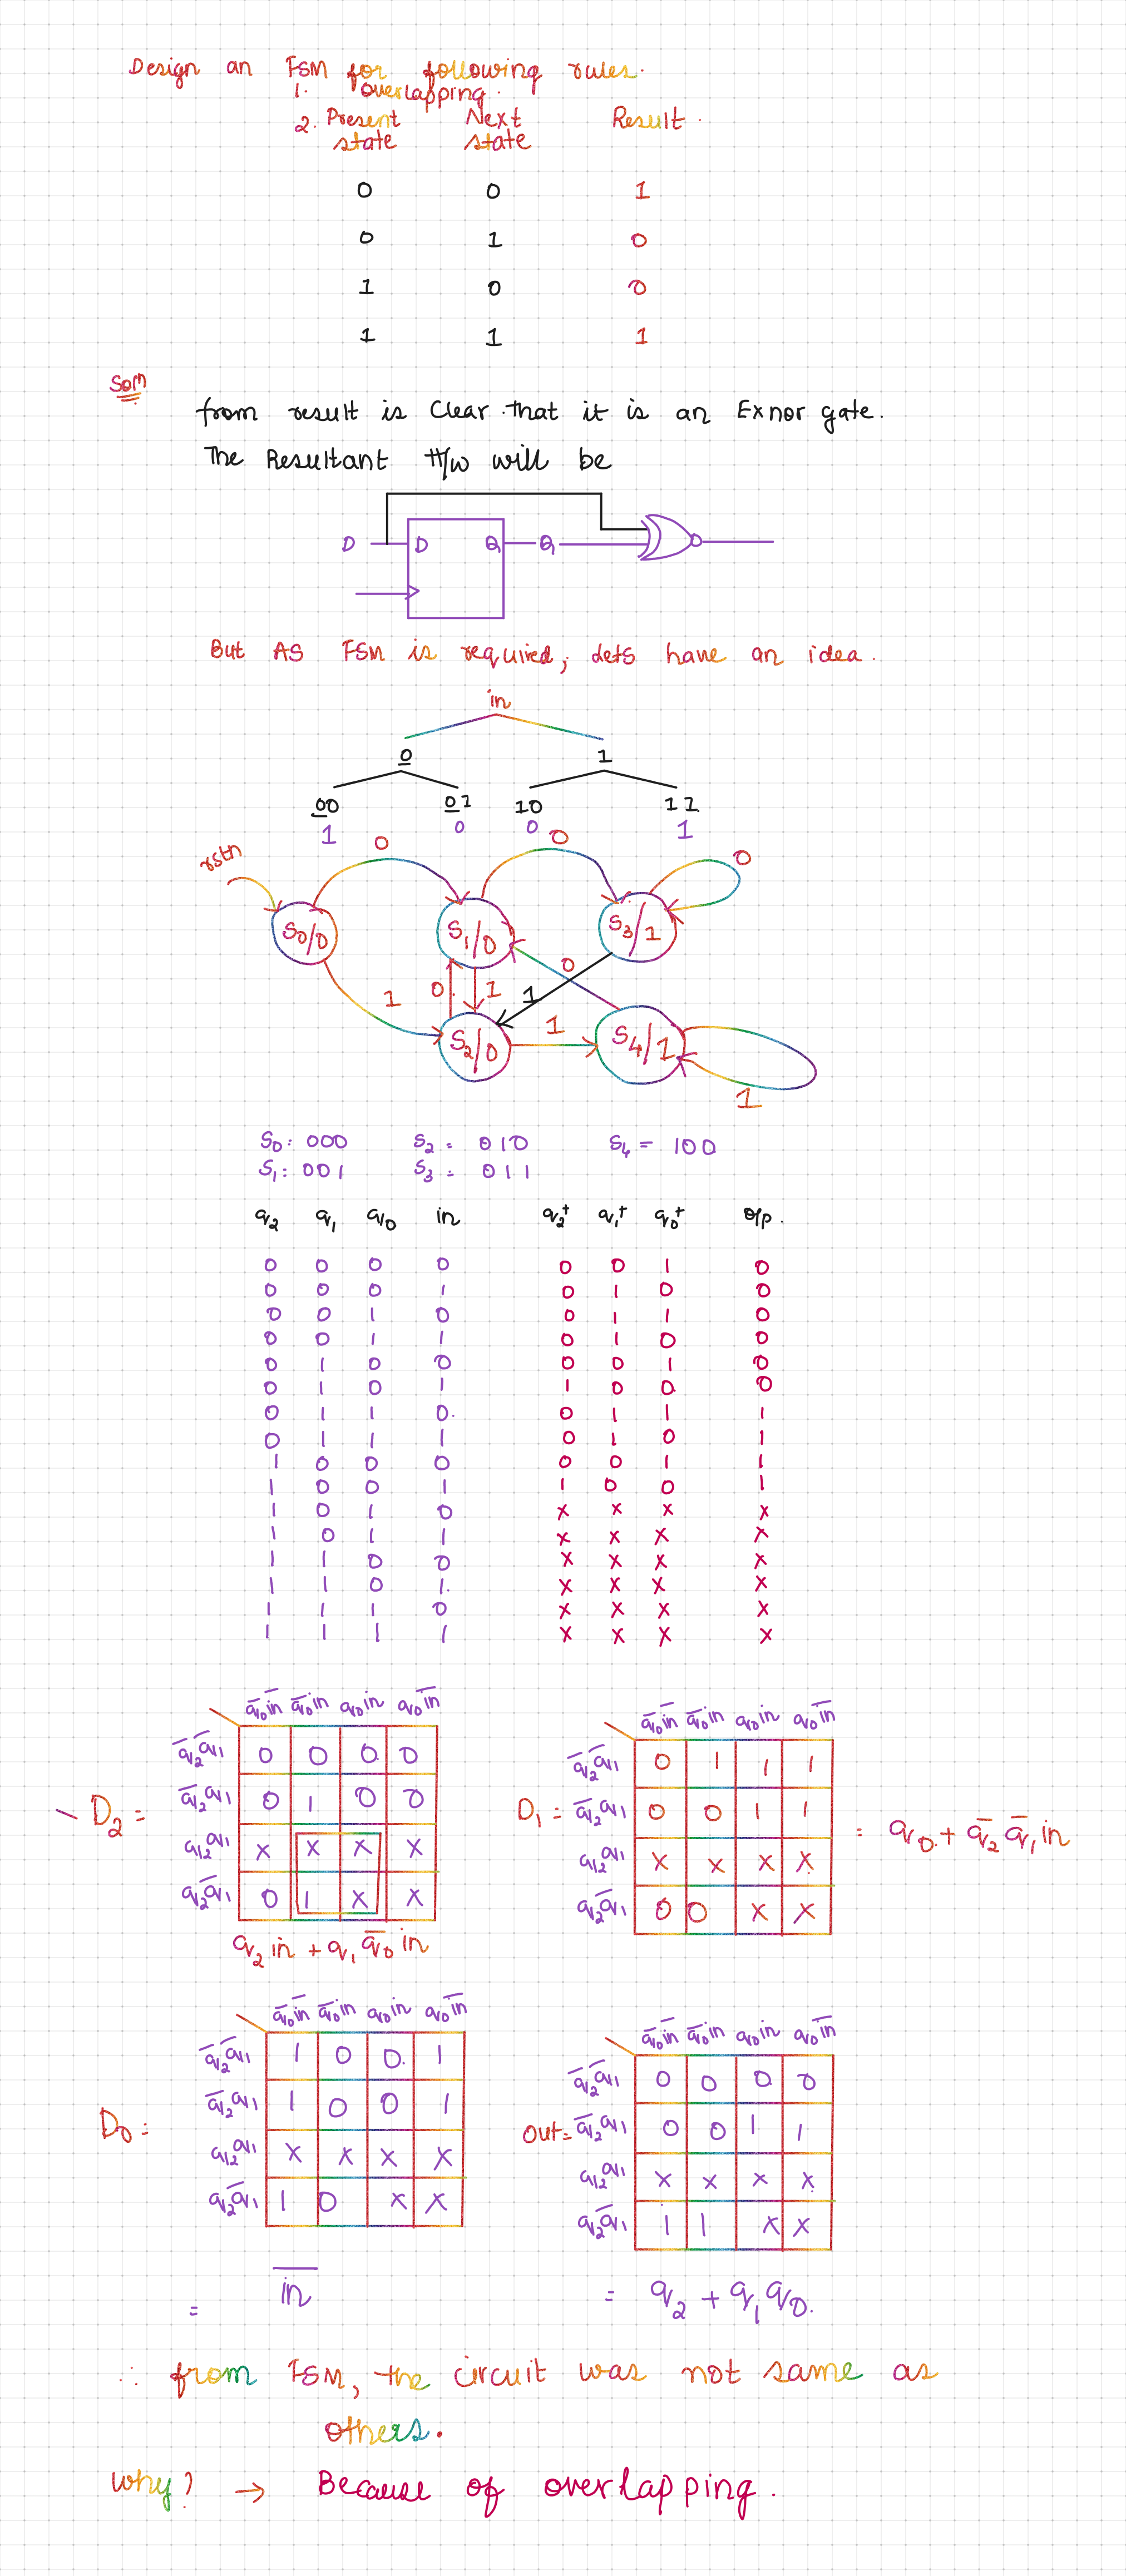 Design an FSM for following rules.
1. overlapping.
2. Present state Next state Result.
0 0 1
0 1 0
1 0 0
1 1 1
Soln
from result is clear that it is an Exnor gate.
The Resultant H/W will be
D D Q Q
But AS FSM is required, lets have an idea.
in
0 1
00 01 10 11
1 0 0 1
rstn 0 0 0
S0/0 S1/0 S3/1
1 0 1 1 0
S2/0 1 S4/1
1
S0: 000 S2: 010 S4 = 100
S1: 001 S3: 011
q2 q1 q0 in q2+ q1+ q0+ o/p.
0 0 0 0 0 0 1 0
0 0 0 1 0 1 0 0
0 0 1 0 0 1 1 0
0 0 1 1 0 1 0 0
0 1 0 0 0 0 1 0
0 1 0 1 1 0 0 0
0 1 1 0. 0 1 1 1
0 1 1 1 0 1 0 1
1 0 0 0 0 0 1 1
1 0 0 1 1 0 0 1
1 0 1 0 x x x x
1 0 1 1 x x x x
1 1 0 0 x x x x
1 1 0 1. x x x x
1 1 1 0 x x x x
1 1 1 1 x x x x
q̅0 i̅n̅ q̅0 in q0 in q0 i̅n̅
q̅2 q̅1 0 0 0 0
D2 = q̅2 q1 0 1 0 0
q2 q1 x x x x
q2 q̅1 0 1 x x
q2 in + q1 q̅0 in
q̅0 i̅n̅ q̅0 in q0 in q0 i̅n̅
q̅2 q̅1 0 1 1 1
D1 = q̅2 q1 0 0 1 1 = q0 + q̅2 q̅1 in
q2 q1 x x x x
q2 q̅1 0 0 x x
q̅0 i̅n̅ q̅0 in q0 in q0 i̅n̅
q̅2 q̅1 1 0 0. 1
D0 = q̅2 q1 1 0 0 1
q2 q1 x x x x
q2 q̅1 1 0 x x
= i̅n̅
q̅0 i̅n̅ q̅0 in q0 in q0 i̅n̅
q̅2 q̅1 0 0 0 0
out = q̅2 q1 0 0 1 1
q2 q1 x x x x
q2 q̅1 1 1 x x
= q2 + q1 q0.
∴ from FSM, the circuit was not same as
others.
why? → Because of overlapping.